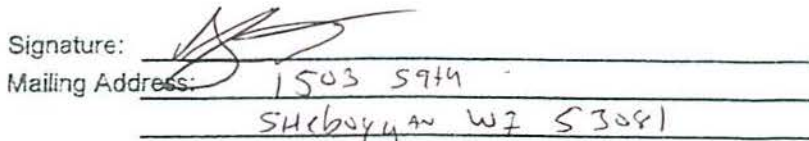 Signature:
Mailing Address: 1503 S 9th
SHeboygan WI 53081